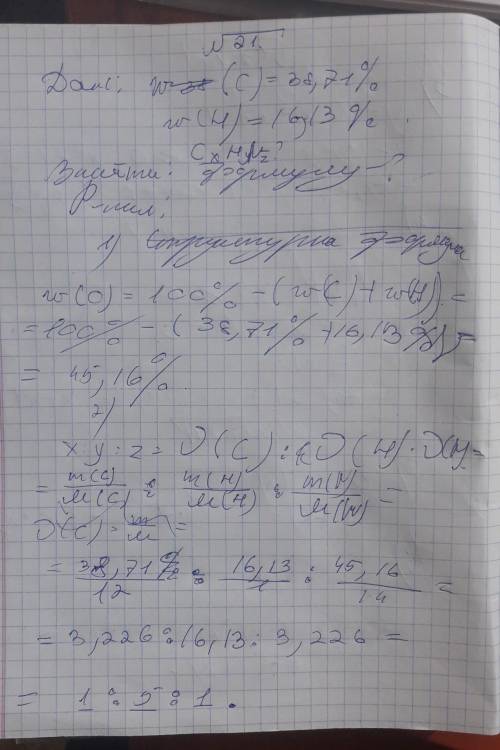 №21.
Дано: w (C) = 38,71%
w (H) = 16,13 %.
CxHyNz?
Знайти: формулу - ?
Р-ння:
1) Структурна формула
w(O) = 100% - (w(C) + w(H)) =
= 100% - ( 38,71% + 16,13 %) =
= 45,16%.
2)
x : y : z = ν(C) : ν(H) : ν(N) =
= m(C)/M(C) : m(H)/M(H) : m(N)/M(N) =
ν(C) = m/M =
= 38,71%/12 : 16,13/1 : 45,16/14 =
= 3,226 : 16,13 : 3,226 =
= 1 : 5 : 1.